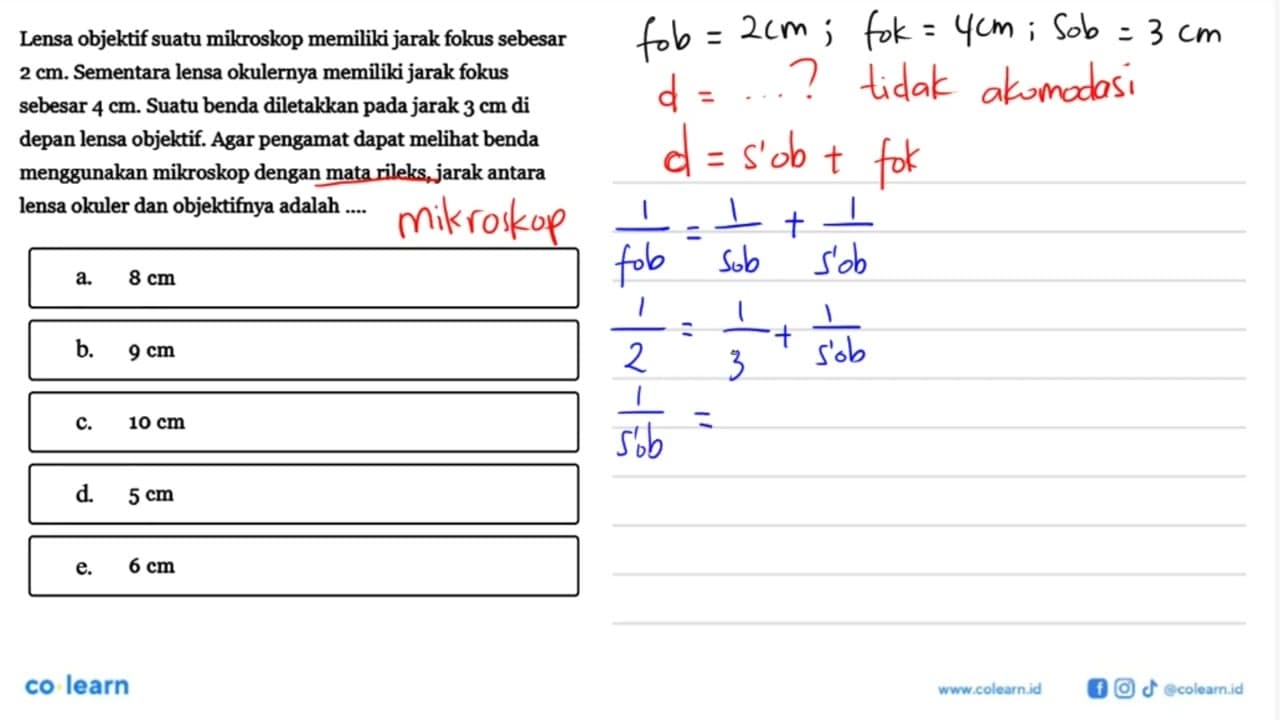 Lensa objektif suatu mikroskop memiliki jarak fokus sebesar
2 cm. Sementara lensa okulernya memiliki jarak fokus
sebesar 4 cm. Suatu benda diletakkan pada jarak 3 cm di
depan lensa objektif. Agar pengamat dapat melihat benda
menggunakan mikroskop dengan mata rileks, jarak antara
lensa okuler dan objektifnya adalah ....
mikroskop
a. 8 cm
b. 9 cm
c. 10 cm
d. 5 cm
e. 6 cm
fob = 2cm ; fok = 4cm ; Sob = 3 cm
d = ...? tidak akomodasi
d = s'ob + fok
1/fob = 1/sob + 1/s'ob
1/2 = 1/3 + 1/s'ob
1/s'ob =
co learn
www.colearn.id
@colearn.id